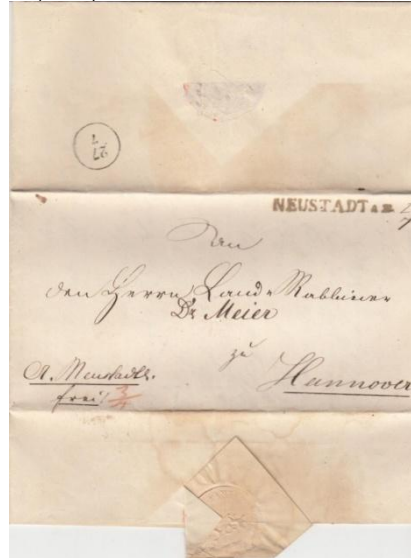 27
4
NEUSTADT a.R.
An
den Herrn Land-Rabbiner
Dr Meier
zu
Hannover
frei